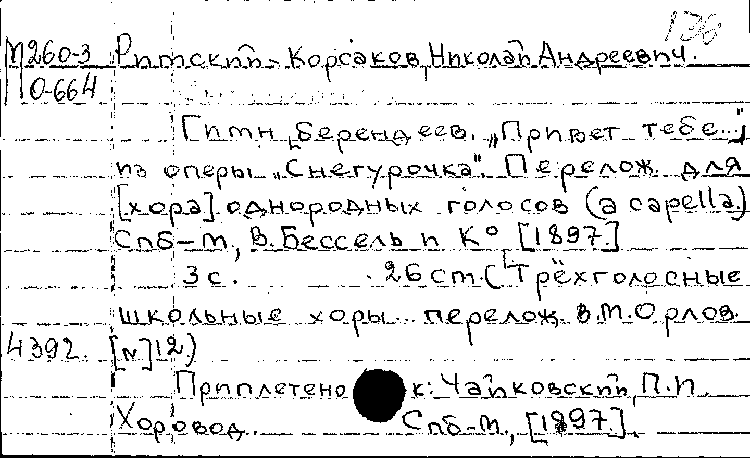 136
М260-3 Римский-Корсаков, Николай Андреевич.
П 0-664
Гимн [Берендеев. „Привет тебе..."]
из оперы „Снегурочка". Перелож. для
[хора] однородных голосов (a capella.)
Спб-М., В. Бессель и К° [1897.]
3 с. 26 cm (Трёхголосные
школьные хоры... перелож. В.М.Орлов.
4392. [№]12)
Приплетено к: Чайковский, П.И.
Хоровод. Спб-М., [1897.].